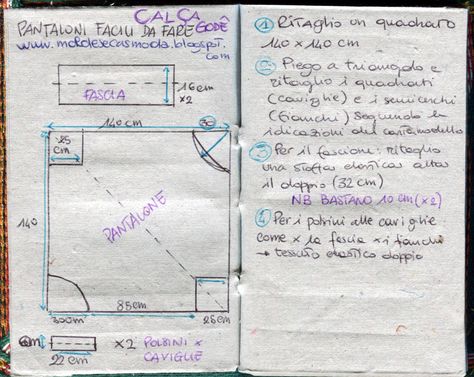 CALÇA
PANTALONI FACILI DA FARE GODÊ
www.moldesecasmoda.blogspot.
com
FASCIA
16 cm
x2
140 cm
25
cm
30
PANTALONE
140
85cm
30cm
25cm
22 cm
x2 POLSINI x
CAVIGLIE
1 RITAGLIO UN QUADRATO
140 x 140 cm
2 Piego a triangolo e
ritaglio i quadrati
(caviglie) e i semicerchi
(fianchi) secondo le
idicazioni del cartamodello
3 Per il fascione: ritaglio
una stoffa elastica alta
il doppio (32 cm)
NB BASTANO 10 cm (x2)
4 Per i polsini alle caviglie
come x la fascia x i fianchi
→ tessuto elastico doppio